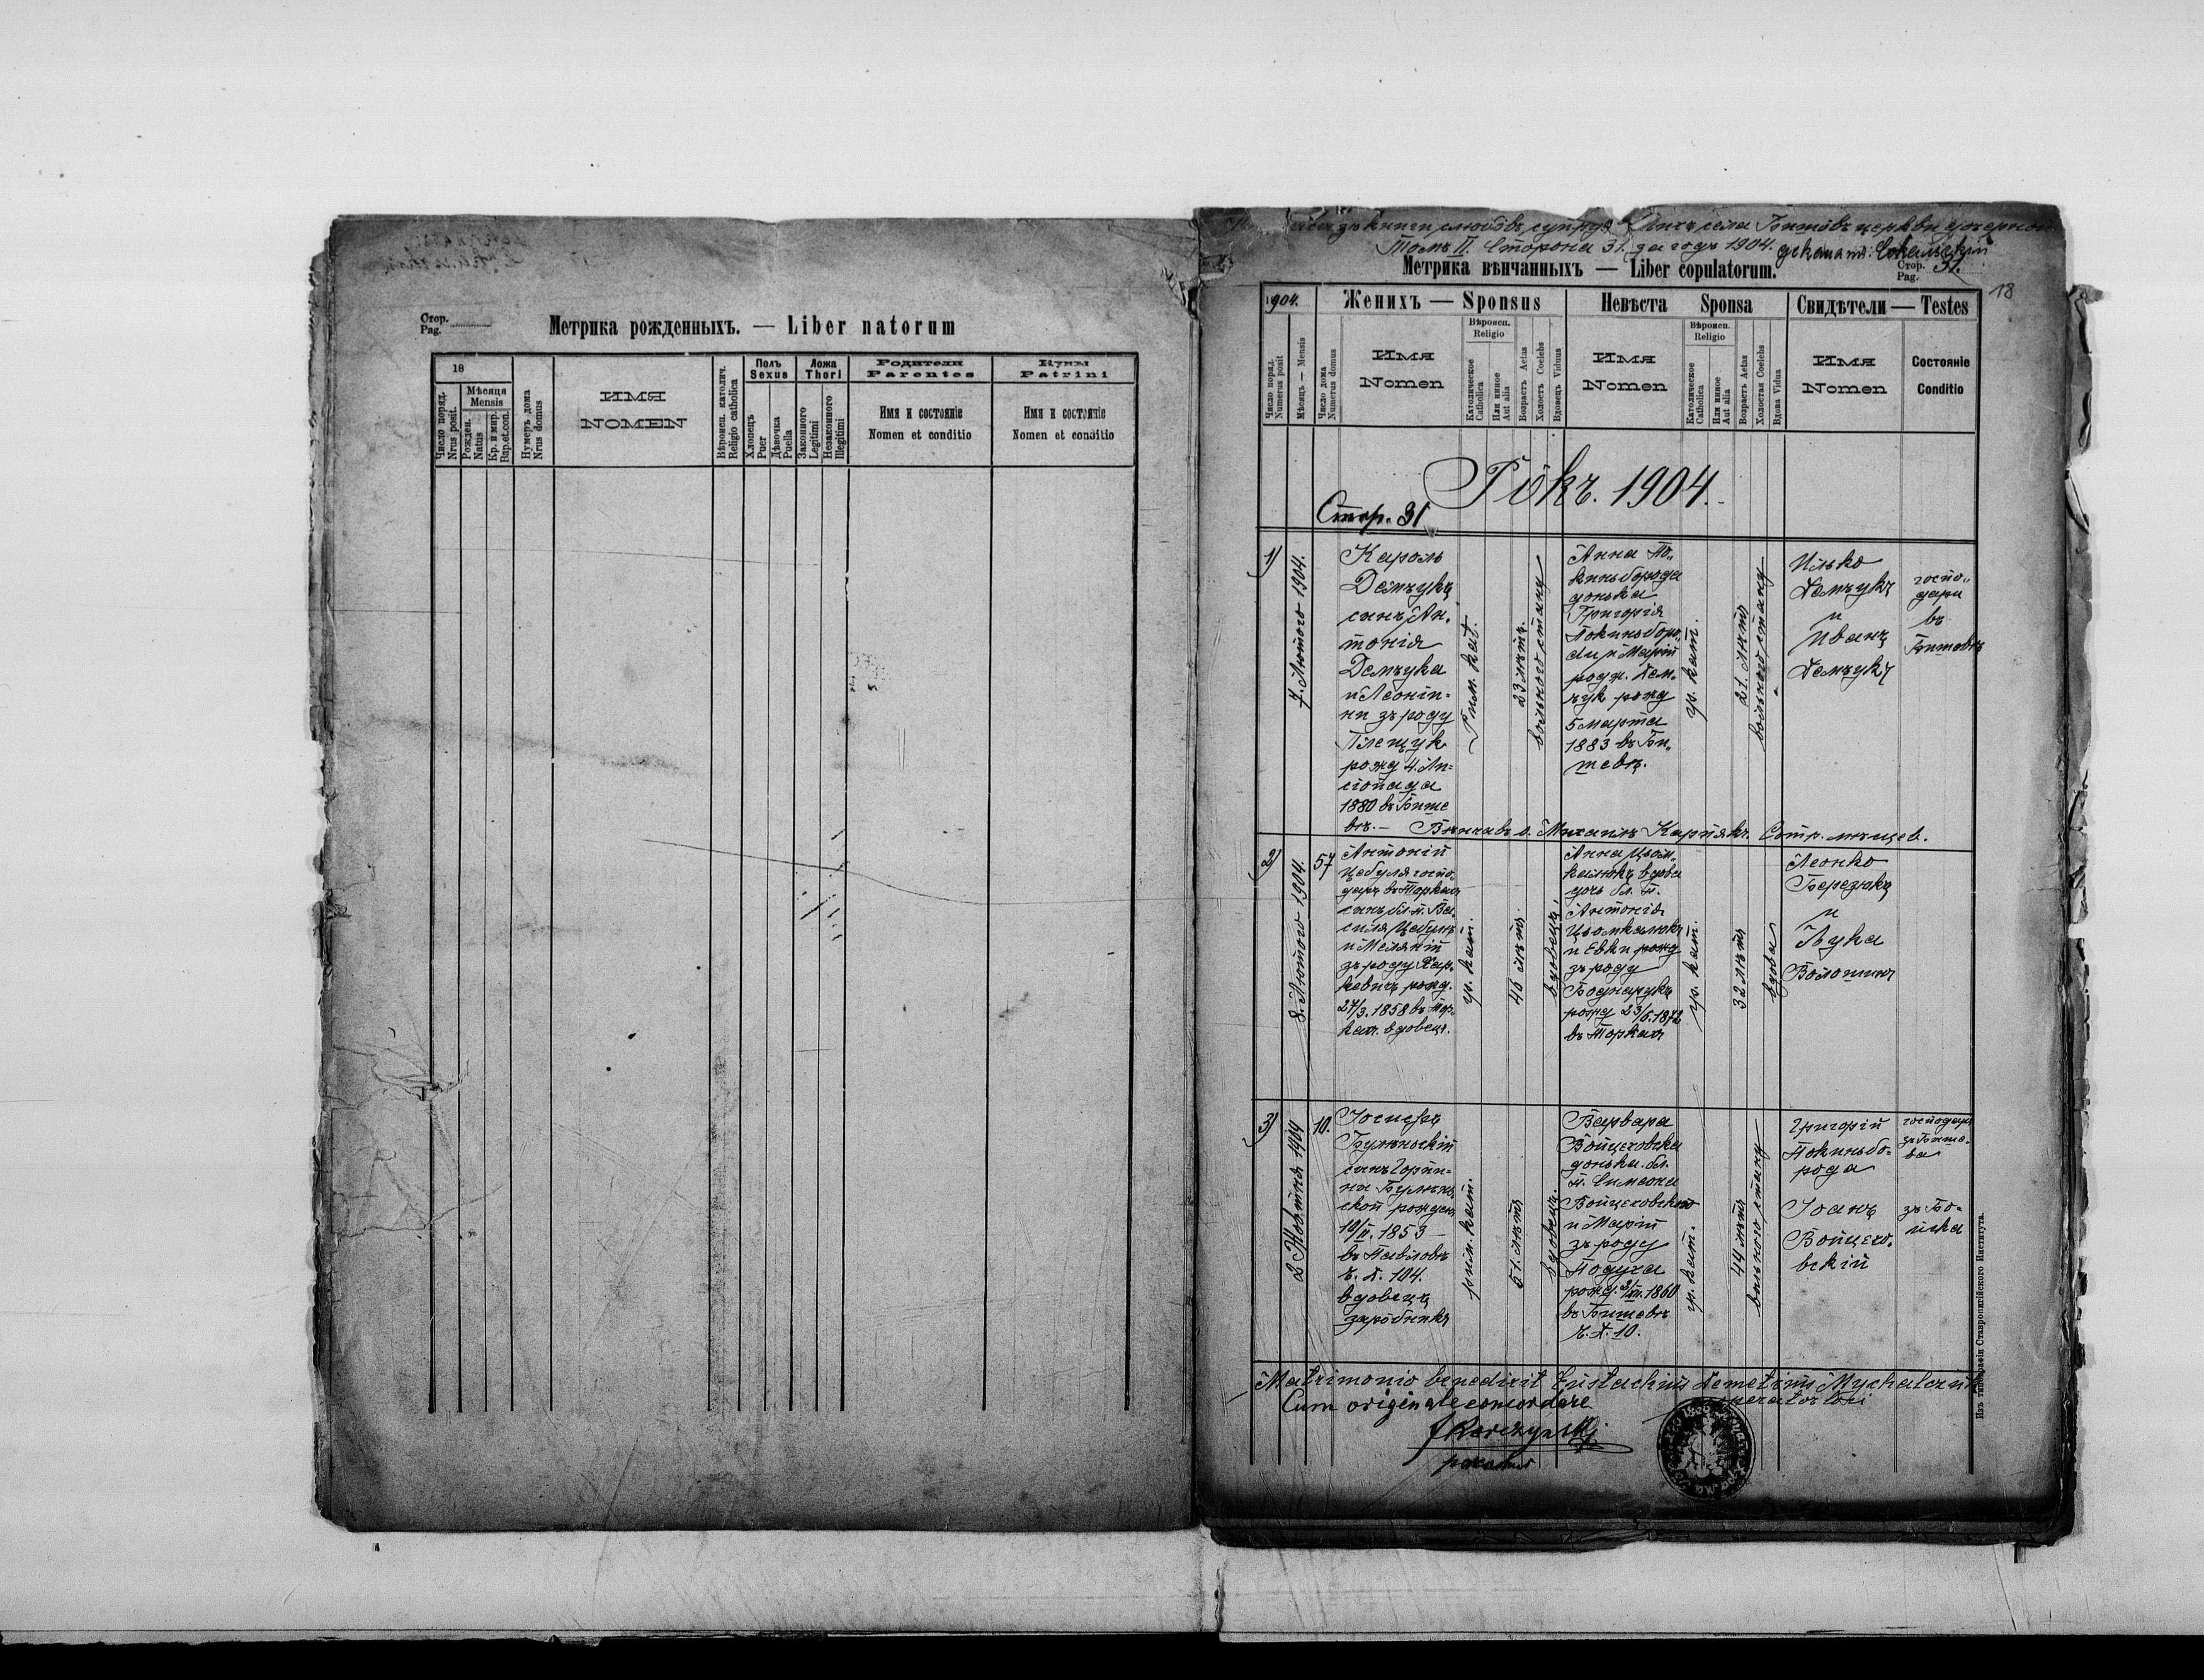 Стор.
Pag.
Метрика рожденныхъ. — Liber natorum
18
Число поряд.
Nrus posit.
Мѣсяца
Mensis
Рожден.
Natus
Кр. и мир.
Bap. et con.
Нумеръ дома
Nrus domus
ИМЯ
NOMEN
Вѣроисп. католич.
Religio catholica
Полъ
Sexus
Хлопецъ
Puer
Дѣвочка
Puella
Ложа
Thori
Законного
Legitimi
Незаконного
Illegitimi
Родители
Parentes
Имя и состояніе
Nomen et conditio
Кумы
Patrini
Имя и состояніе
Nomen et conditio
зъ книги слюбôвъ села церкви
Томъ II. Сторона 31. за годъ 1904.
Метрика вѣнчанныхъ — Liber copulatorum.
Стор.
Pag.
31.
18
1904.
Женихъ — Sponsus
Невѣста Sponsa
Свидѣтели — Testes
Число поряд.
Numerus posit
Мѣсяцъ — Mensis
Число дома
Numerus domus
Имя
Nomen
Вѣроисп.
Religio
Католическое
Catholica
Или инное
Aut alia
Возрастъ Aetas
Холостъ Coelebs
Вдовецъ Viduus
Имя
Nomen
Вѣроисп.
Religio
Католическое
Catholica
Или инное
Aut alia
Возрастъ Aetas
Холостая Coelebs
Вдова Vidua
Имя
Nomen
Состояніе
Conditio
Рôкъ. 1904.
Стор. 31
1)
7. Лютого 1904.
Кароль
Демчукъ
сынъ Ан.
тонія
Демчука
и Леонін-
ни зъ роду
Плещук
рожд 4. Ли-
стопада
1880 въ Битте
вѣ.—
Рим. kat.
23 лѣтъ.
вôльного стану
Анна По„
киньборода
донька
Григорія
Покиньборо„
ды и Маріи
родж. Дем„
чук рожд
5 марта
1883 въ Би„
шевѣ.
гр. кат.
21 лѣтъ
вôльного стану
Илько
Демчукъ
и
Иванъ
Демчукъ
госпо„
дари
въ
Вѣнчавъ о. Михаилъ Сотр. мѣсцев.
2)
8. Лютого 1904.
57
Антоній
Цебуля госпо„
даръ въ Торкахъ
сынъ бл. п. Ва„
силя Цебулѣ
и Меланіи
зъ роду Хар„
кевичъ рожд.
27/3. 1858 въ Тор„
ках. вдовецъ.
гр. кат.
46 лѣтъ
вдовецъ
Анна
вдова
бл. п.
Антонія
и Евки рожд
зъ роду
Боднарукъ
рожд 23/6. 1872
въ Торкахъ
гр. кат.
32 лѣтъ
вдова
Леонко
Березюкъ
и
Лука
Волошинъ
3)
2 Жовтня 1904
10.
Іосифъ
сынъ
рожден
19/II. 1853 —
въ Павловѣ
ч. д. 104.
вдовецъ
зарôбникъ
рим. кат.
51. лѣтъ
вдовецъ.
Варвара
Войцеховска
донька бл.
п. Симеона
Войцеховского
и Маріи
зъ роду
Подуха
1860
ч. д. 10.
гр. кат.
44 лѣтъ
вôльного стану
Григорій
Покиньбо-
рода
господаръ
Іоанъ
Войцехо„
вскій
Matrimonio benedixit Eustachius Demetrius
Cum originale concordare
parochus
Изъ типографіи Ставропигійского Института.